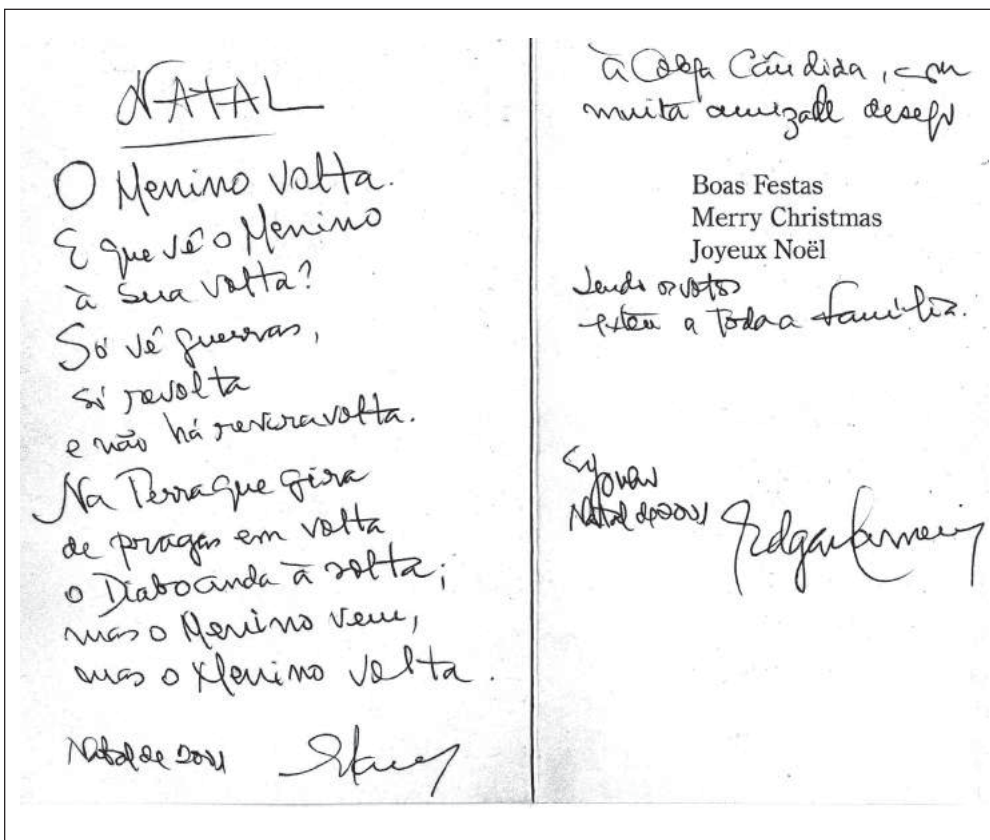 NATAL
O Menino volta.
E que vê o Menino
à sua volta?
Só vê guerras,
só revolta
e não há reviravolta.
Na Terra que gira
de pragas em volta
o Diabo anda à solta;
mas o Menino vem,
mas o Menino volta.
Natal de 2001
à Colega Cândida, com
muita amizade desejo
Boas Festas
Merry Christmas
Joyeux Noël
sendo os votos
a toda a Família.
Natal de 2001
Edgar Carneiro